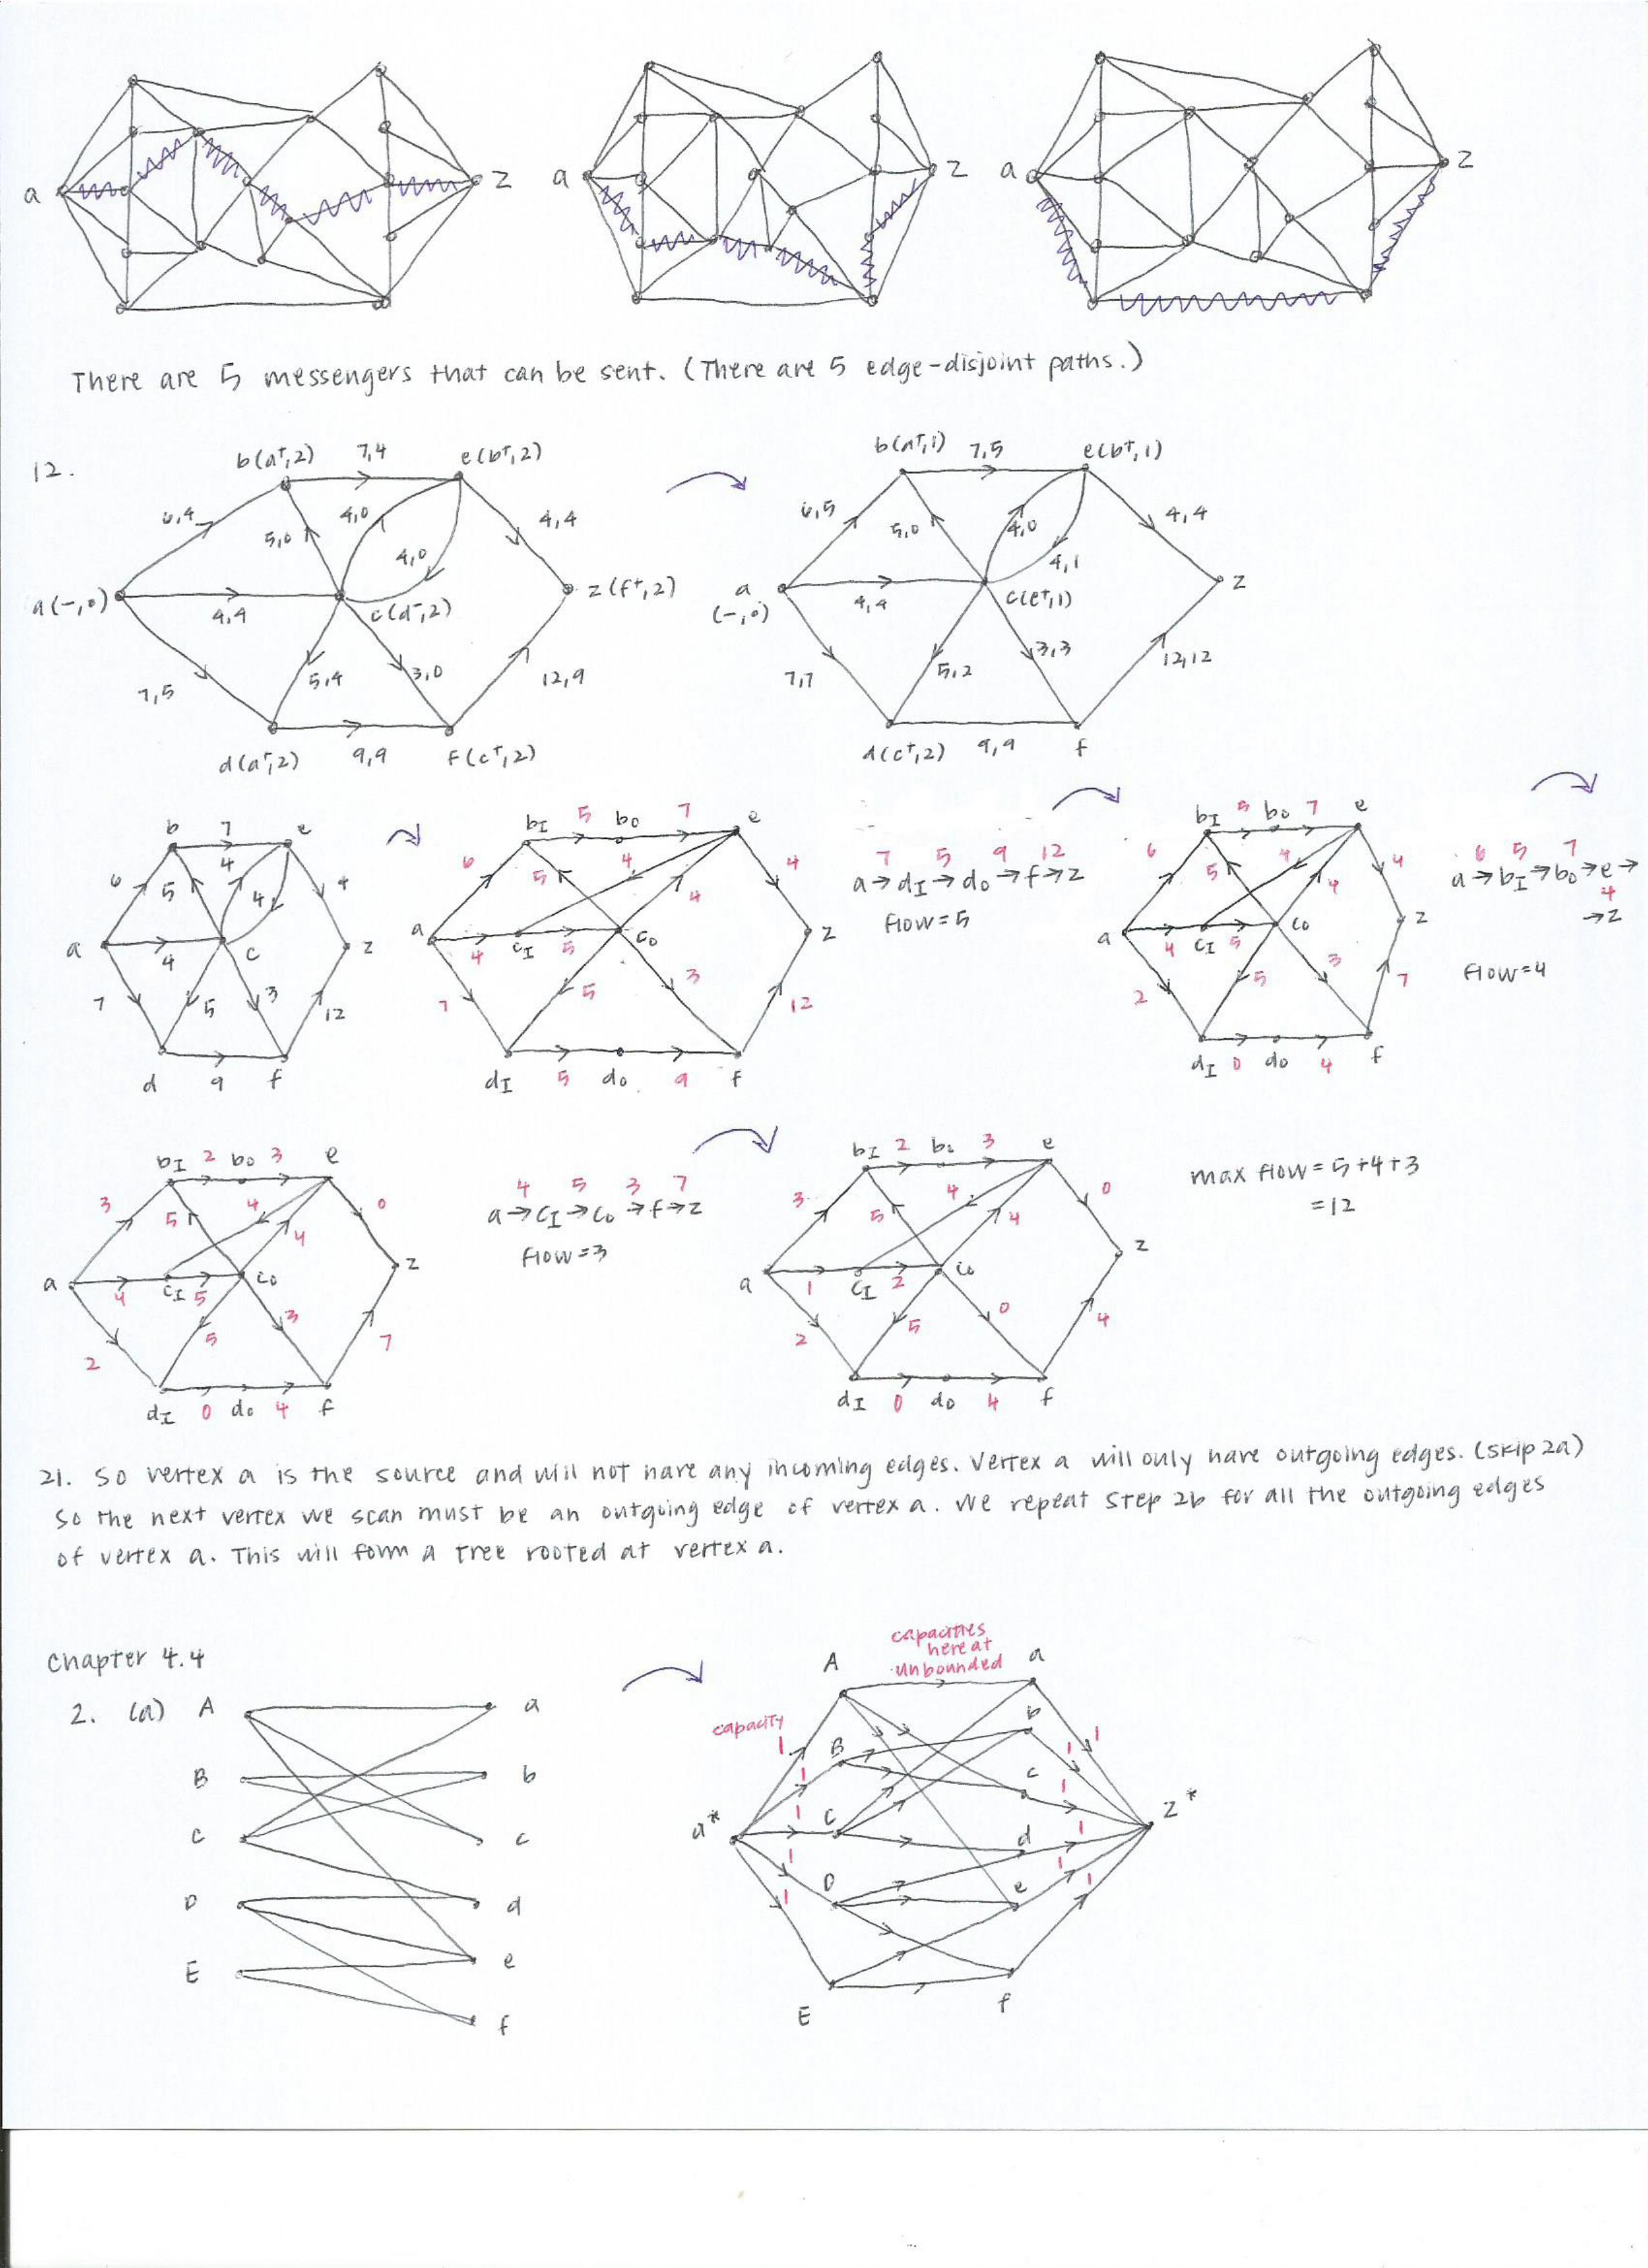 a z a z a z
There are 5 messengers that can be sent. (There are 5 edge-disjoint paths.)
12.
b(a⁺,2) 7,4 e(b⁺,2)
6,4 5,0 4,0 4,0 4,4
a(-,0) 4,4 c(d⁻,2) z(f⁺,2)
7,5 5,4 3,0 12,9
d(a⁺,2) 9,9 f(c⁺,2)
b(a⁺,1) 7,5 e(b⁺,1)
6,5 5,0 4,0 4,1 4,4
a (-,0) 4,4 c(e⁺,1) z
7,7 5,2 3,3 12,12
d(c⁺,2) 9,9 f
b 7 e
6 5 4 4 4
a 4 c z
7 5 3 12
d 9 f
bI 5 bo 7 e
6 5 4 4 4
a 4 cI 5 co z
7 5 3 12
dI 5 do 9 f
7 5 9 12
a→dI→do→f→z
flow=5
bI 5 bo 7 e
6 5 4 4 4
a 4 cI 5 co z
2 5 3 7
dI 0 do 4 f
6 5 7
a→bI→bo→e→
4
→z
flow=4
bI 2 bo 3 e
3 5 4 4 0
a 4 cI 5 co z
2 5 3 7
dI 0 do 4 f
4 5 3 7
a→cI→co→f→z
flow=3
bI 2 bo 3 e
3 5 4 4 0
a 1 cI 2 co z
2 5 0 4
dI 0 do 4 f
max flow = 5+4+3
=12
21. So vertex a is the source and will not have any incoming edges. Vertex a will only have outgoing edges. (skip 2a)
So the next vertex we scan must be an outgoing edge of vertex a. We repeat Step 2b for all the outgoing edges
of vertex a. This will form a tree rooted at vertex a.
Chapter 4.4
2. (a) A a
B b
C c
D d
E e
f
capacities
here at
unbounded
A a
capacity
1 B b 1 1
1 c 1
a* 1 C z*
1 d 1
1 D e 1 1
E f